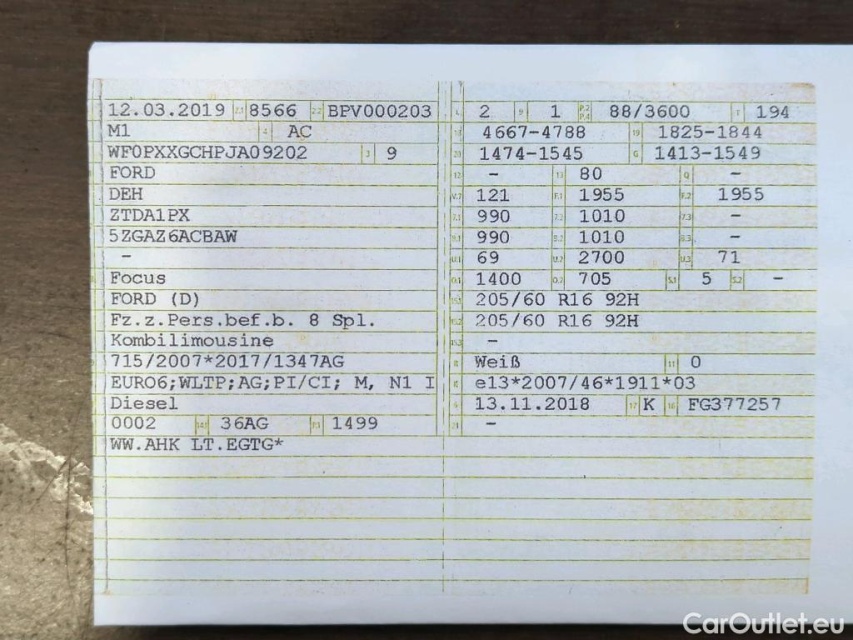 12.03.2019 8566 BPV000203
M1 AC
WF0PXXGCHPJA09202 9
FORD
DEH
ZTDA1PX
5ZGAZ6ACBAW
-
Focus
FORD (D)
Fz.z.Pers.bef.b. 8 Spl.
Kombilimousine
715/2007*2017/1347AG
EURO6;WLTP;AG;PI/CI; M, N1 I
Diesel
0002 36AG 1499
WW.AHK LT.EGTG*
2 1 88/3600 194
4667-4788 1825-1844
1474-1545 1413-1549
- 80 -
121 1955 1955
990 1010 -
990 1010 -
69 2700 71
1400 705 5 -
205/60 R16 92H
205/60 R16 92H
-
Weiß 0
e13*2007/46*1911*03
13.11.2018 K FG377257
-
CarOutlet.eu